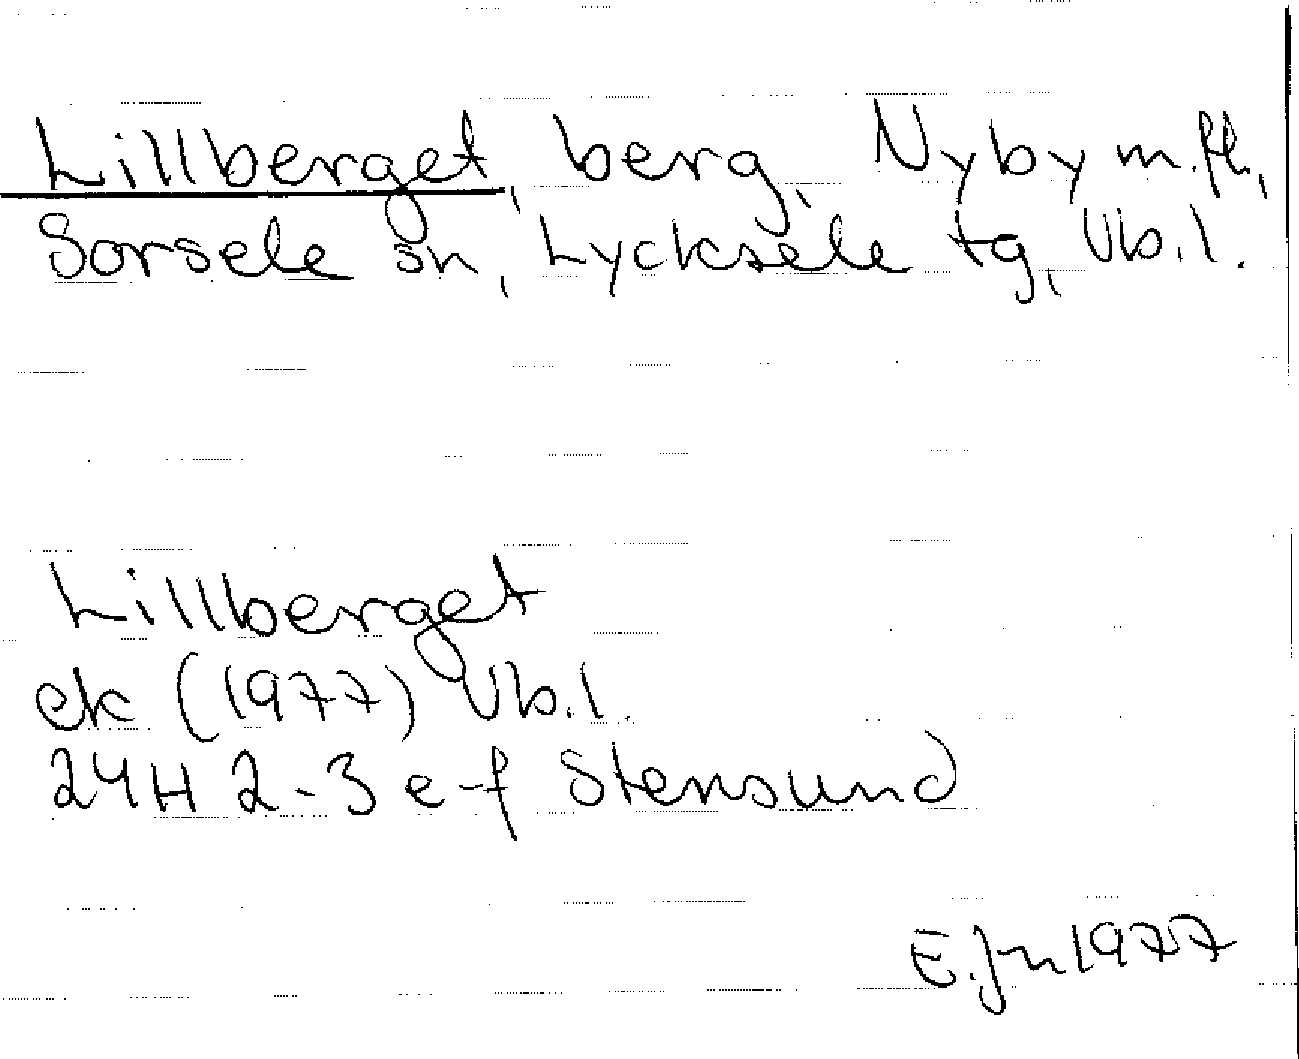 Lillberget, berg, Nyby m.fl.,
Sorsele sn, Lycksele tg, Vb.l.
Lillberget
ek (1977) Vb.l.
24H 2-3 e-f Stensund
E.Jn 1977